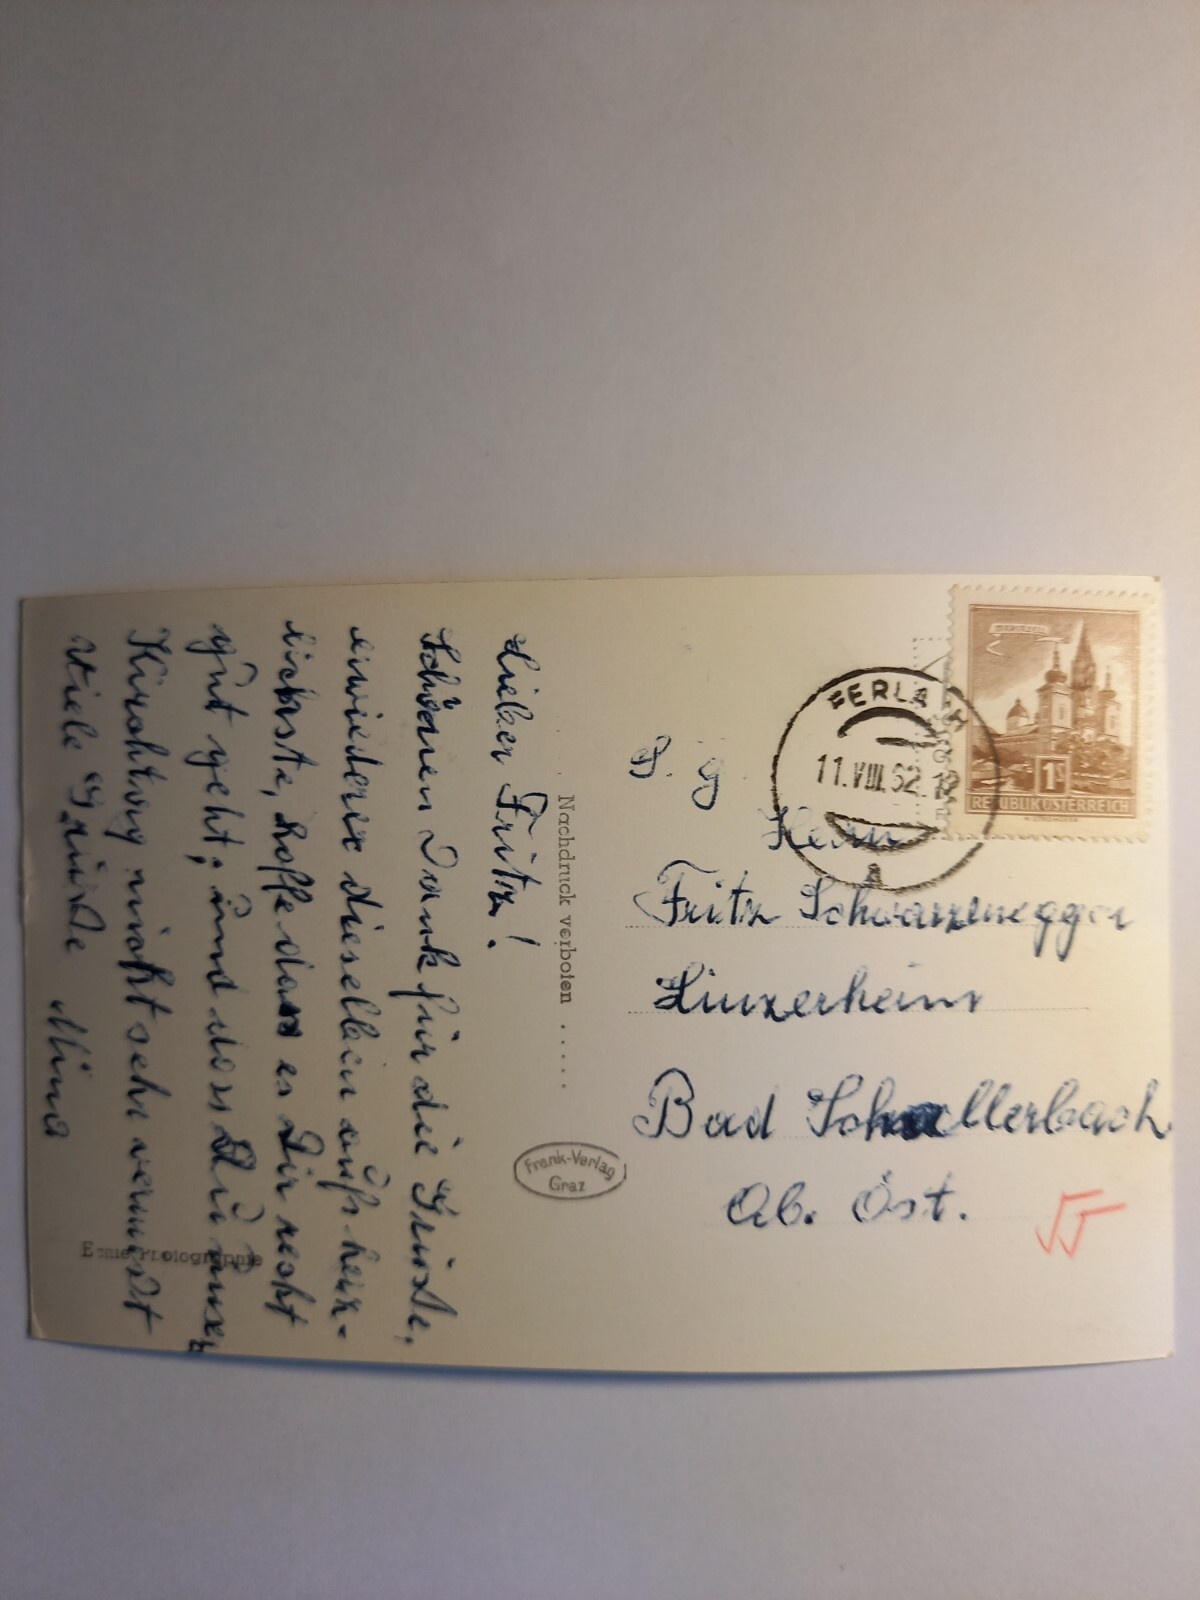 Lieber Fritz!
Schönen Dank für die Grüsse,
erwiedere dieselben aufs herz-
lichste, hoffe dass es Dir recht
gut geht; und dass Du unser
Kirchtag nicht sehr vermisst
Viele Grüsse Mina
Echte Photographie
Nachdruck verboten .....
Frank-Verlag
Graz
REPUBLIK ÖSTERREICH
1S
FERLACH
11.VIII.62.12
a
Herrn
Fritz Schwarzenegger
Linzerheim
Bad Schallerbach
Ob. Öst.